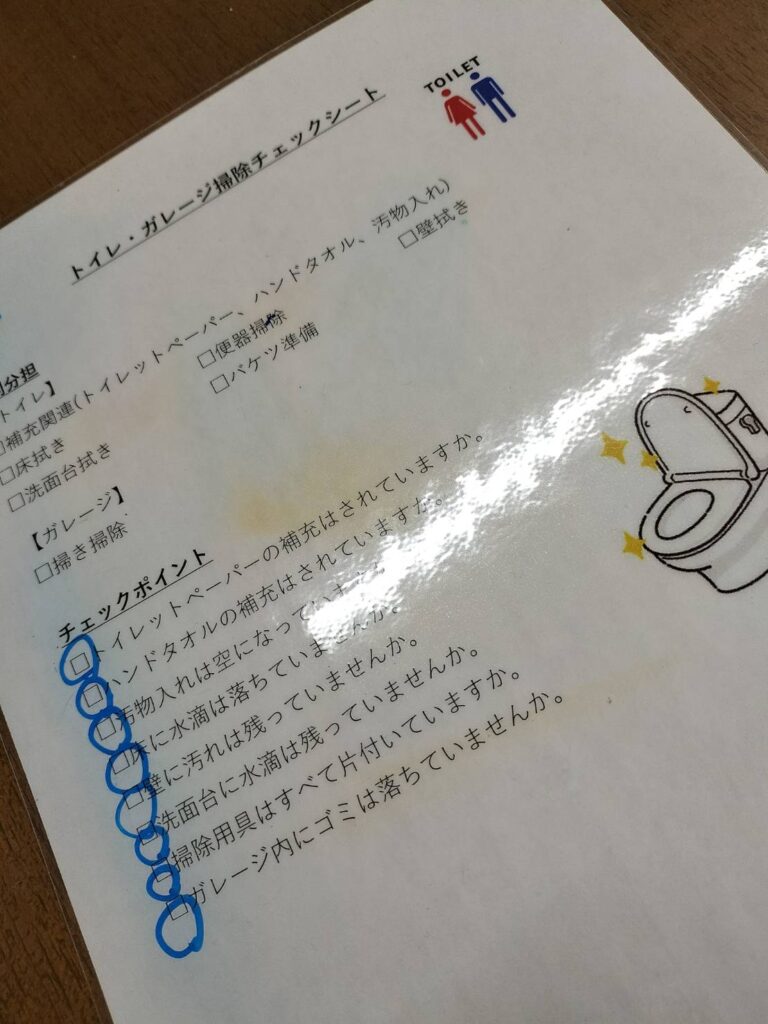 TOILET
トイレ・ガレージ掃除チェックシート
分担
トイレ】
□補充関連(トイレットペーパー、ハンドタオル、汚物入れ)
□床拭き □便器掃除 □壁拭き
□洗面台拭き □バケツ準備
【ガレージ】
□掃き掃除
チェックポイント
□トイレットペーパーの補充はされていますか。
□ハンドタオルの補充はされていますか。
□汚物入れは空になっていますか
□床に水滴は落ちていませんか。
□壁に汚れは残っていませんか。
□洗面台に水滴は残っていませんか。
□掃除用具はすべて片付いていますか。
□ガレージ内にゴミは落ちていませんか。